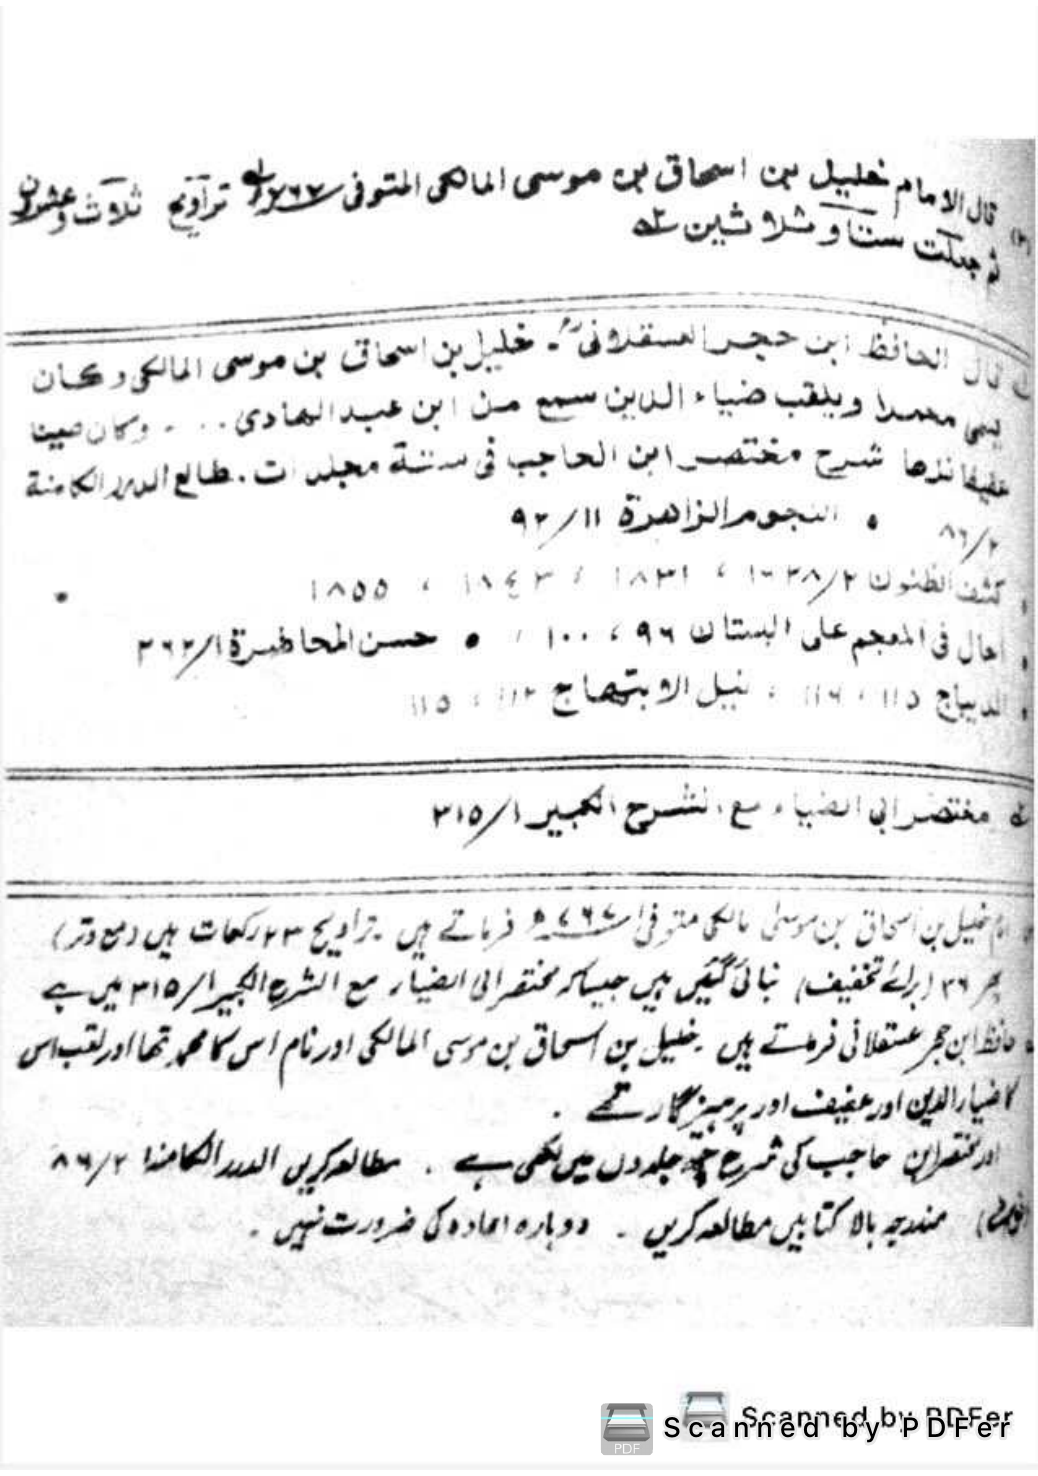 (۳) قال الامام خلیل بن اسحاق بن موسی المالکی المتوفی ۷۶۷ھ تراویح ثلاث وعشرون
ثم جعلت ستا و ثلاثین
قال الحافظ ابن حجر العسقلانی ۔ خلیل بن اسحاق بن موسی المالکی وکان
یسمی محمدا ویلقب ضیاء الدین سمع من ابن عبد الھادی . . . وکان صینا
عفیفا نزھا شرح مختصر ابن الحاجب فی ستة مجلدات . طالع الدرر الکامنة
۸۶/۲ • النجوم الزاھرة ۹۲/۱۱
• کشف الظنون ۱۶۲۸/۲ ، ۱۸۳۱ ، ۱۸۴۳ ، ۱۸۵۵
• فی المعجم علی البستان ۹۶ ، ۱۰۰ ، • حسن المحاضرة ۲۶۲/۱
• الدیباج ۱۱۵ ، ۱۱۶ ، نیل الابتھاج ۱۱۲ ، ۱۱۵
مختصر ابی الضیاء مع الشرح الکبیر ۳۱۵/۱
امام خلیل بن اسحاق بن موسیٰ مالکی متوفی ۷۶۷ھ فرماتے ہیں ۔ تراویح ۲۳ رکعات ہیں (مع وتر)
پھر ۳۶ (برائے تخفیف) بنائی گئیں ہیں جیسا کہ مختصر ابی الضیاء مع الشرح الکبیر ۳۱۵/۱ میں ہے
حافظ ابن حجر عسقلانی فرماتے ہیں ۔ خلیل بن اسحاق بن موسی المالکی اور نام اس کا محمد تھا اور لقب اس
کا ضیاء الدین اور عفیف اور پرہیز گار تھے ۔
اور مختصر ابن حاجب کی شرح چھ جلدوں میں لکھی ہے ۔ مطالعہ کریں الدرر الکامنہ ۸۶/۲
مندرجہ بالا کتابیں مطالعہ کریں ۔ دوبارہ اعادہ کی ضرورت نہیں ۔
Scanned by PDFer
Scanned by PDFer
PDF